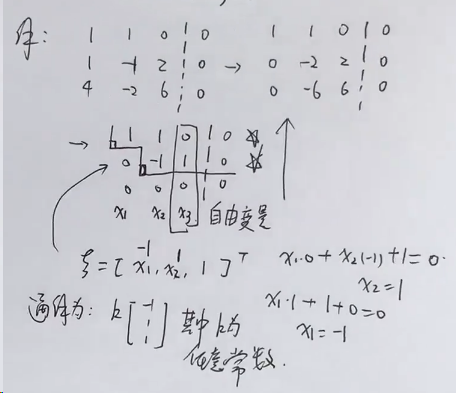 解:
1 1 0 | 0 1 1 0 | 0
1 -1 2 | 0 → 0 -2 2 | 0
4 -2 6 | 0 0 -6 6 | 0
→ 1 1 0 | 0 ☆
0 -1 1 | 0 ☆
0 0 0 | 0
x₁ x₂ x₃ 自由变量
-1 1
ξ = [ x₁, x₂, 1 ]ᵀ x₁·0 + x₂(-1) + 1 = 0
x₂ = 1
x₁·1 + 1 + 0 = 0
x₁ = -1
通解为: k [ -1 1 1 ] 其中k为
任意常数.